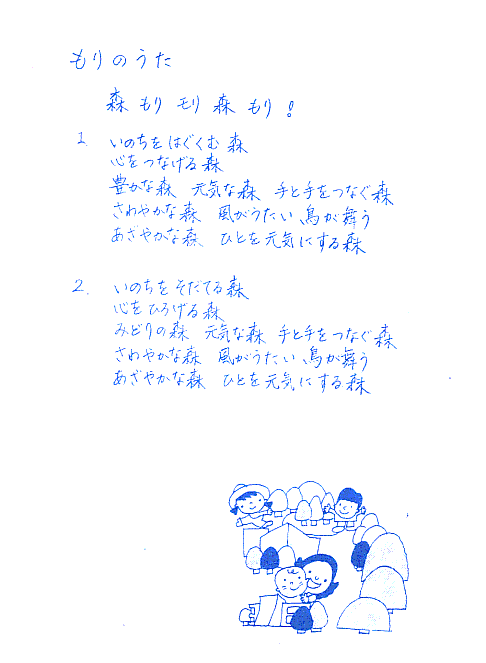 もりのうた
森 もり モリ 森 もり!
1. いのちをはぐくむ森
心をつなげる森
豊かな森 元気な森 手と手をつなぐ森
さわやかな森 風がうたい、鳥が舞う
あざやかな森 ひとを元気にする森
2. いのちをそだてる森
心をひろげる森
みどりの森 元気な森 手と手をつなぐ森
さわやかな森 風がうたい、鳥が舞う
あざやかな森 ひとを元気にする森